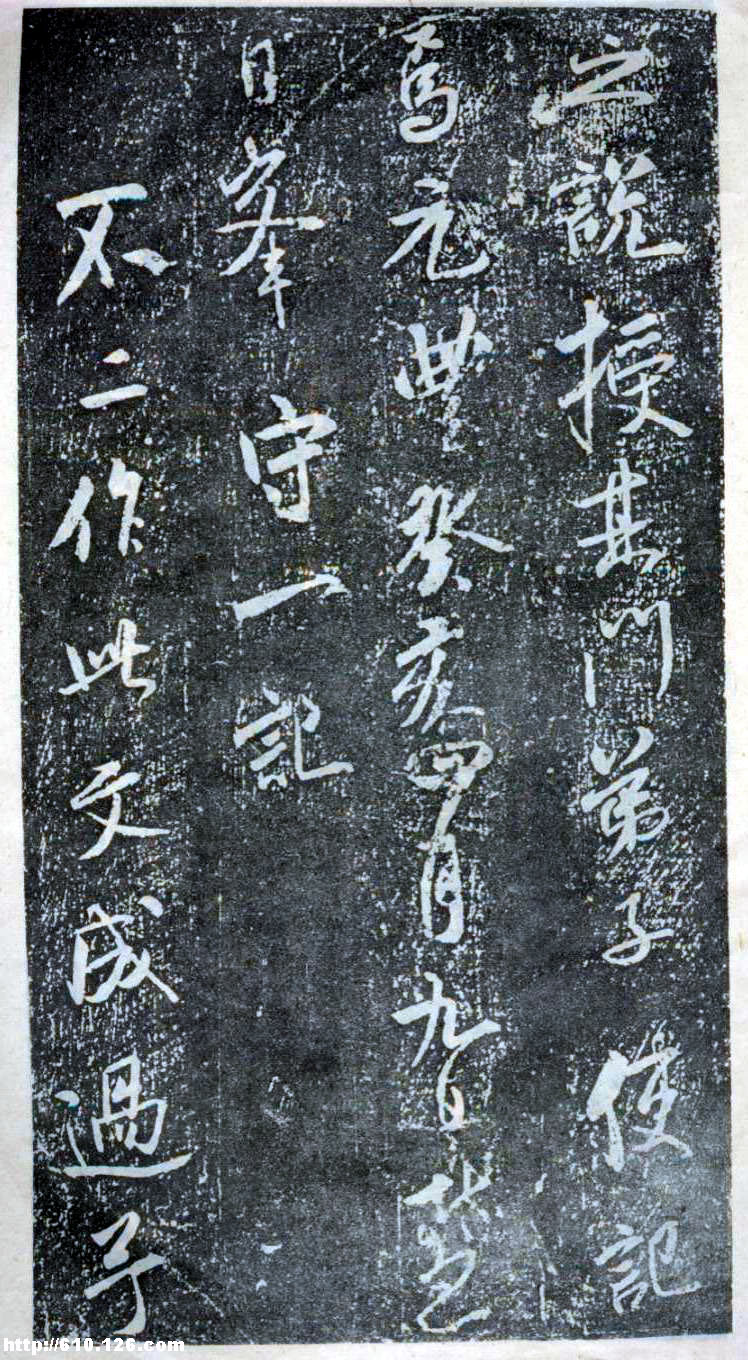 之說授其門弟子使記
焉元豐癸亥四月九日慧
日峯守一記
不二作此文成過予
http://610.126.com